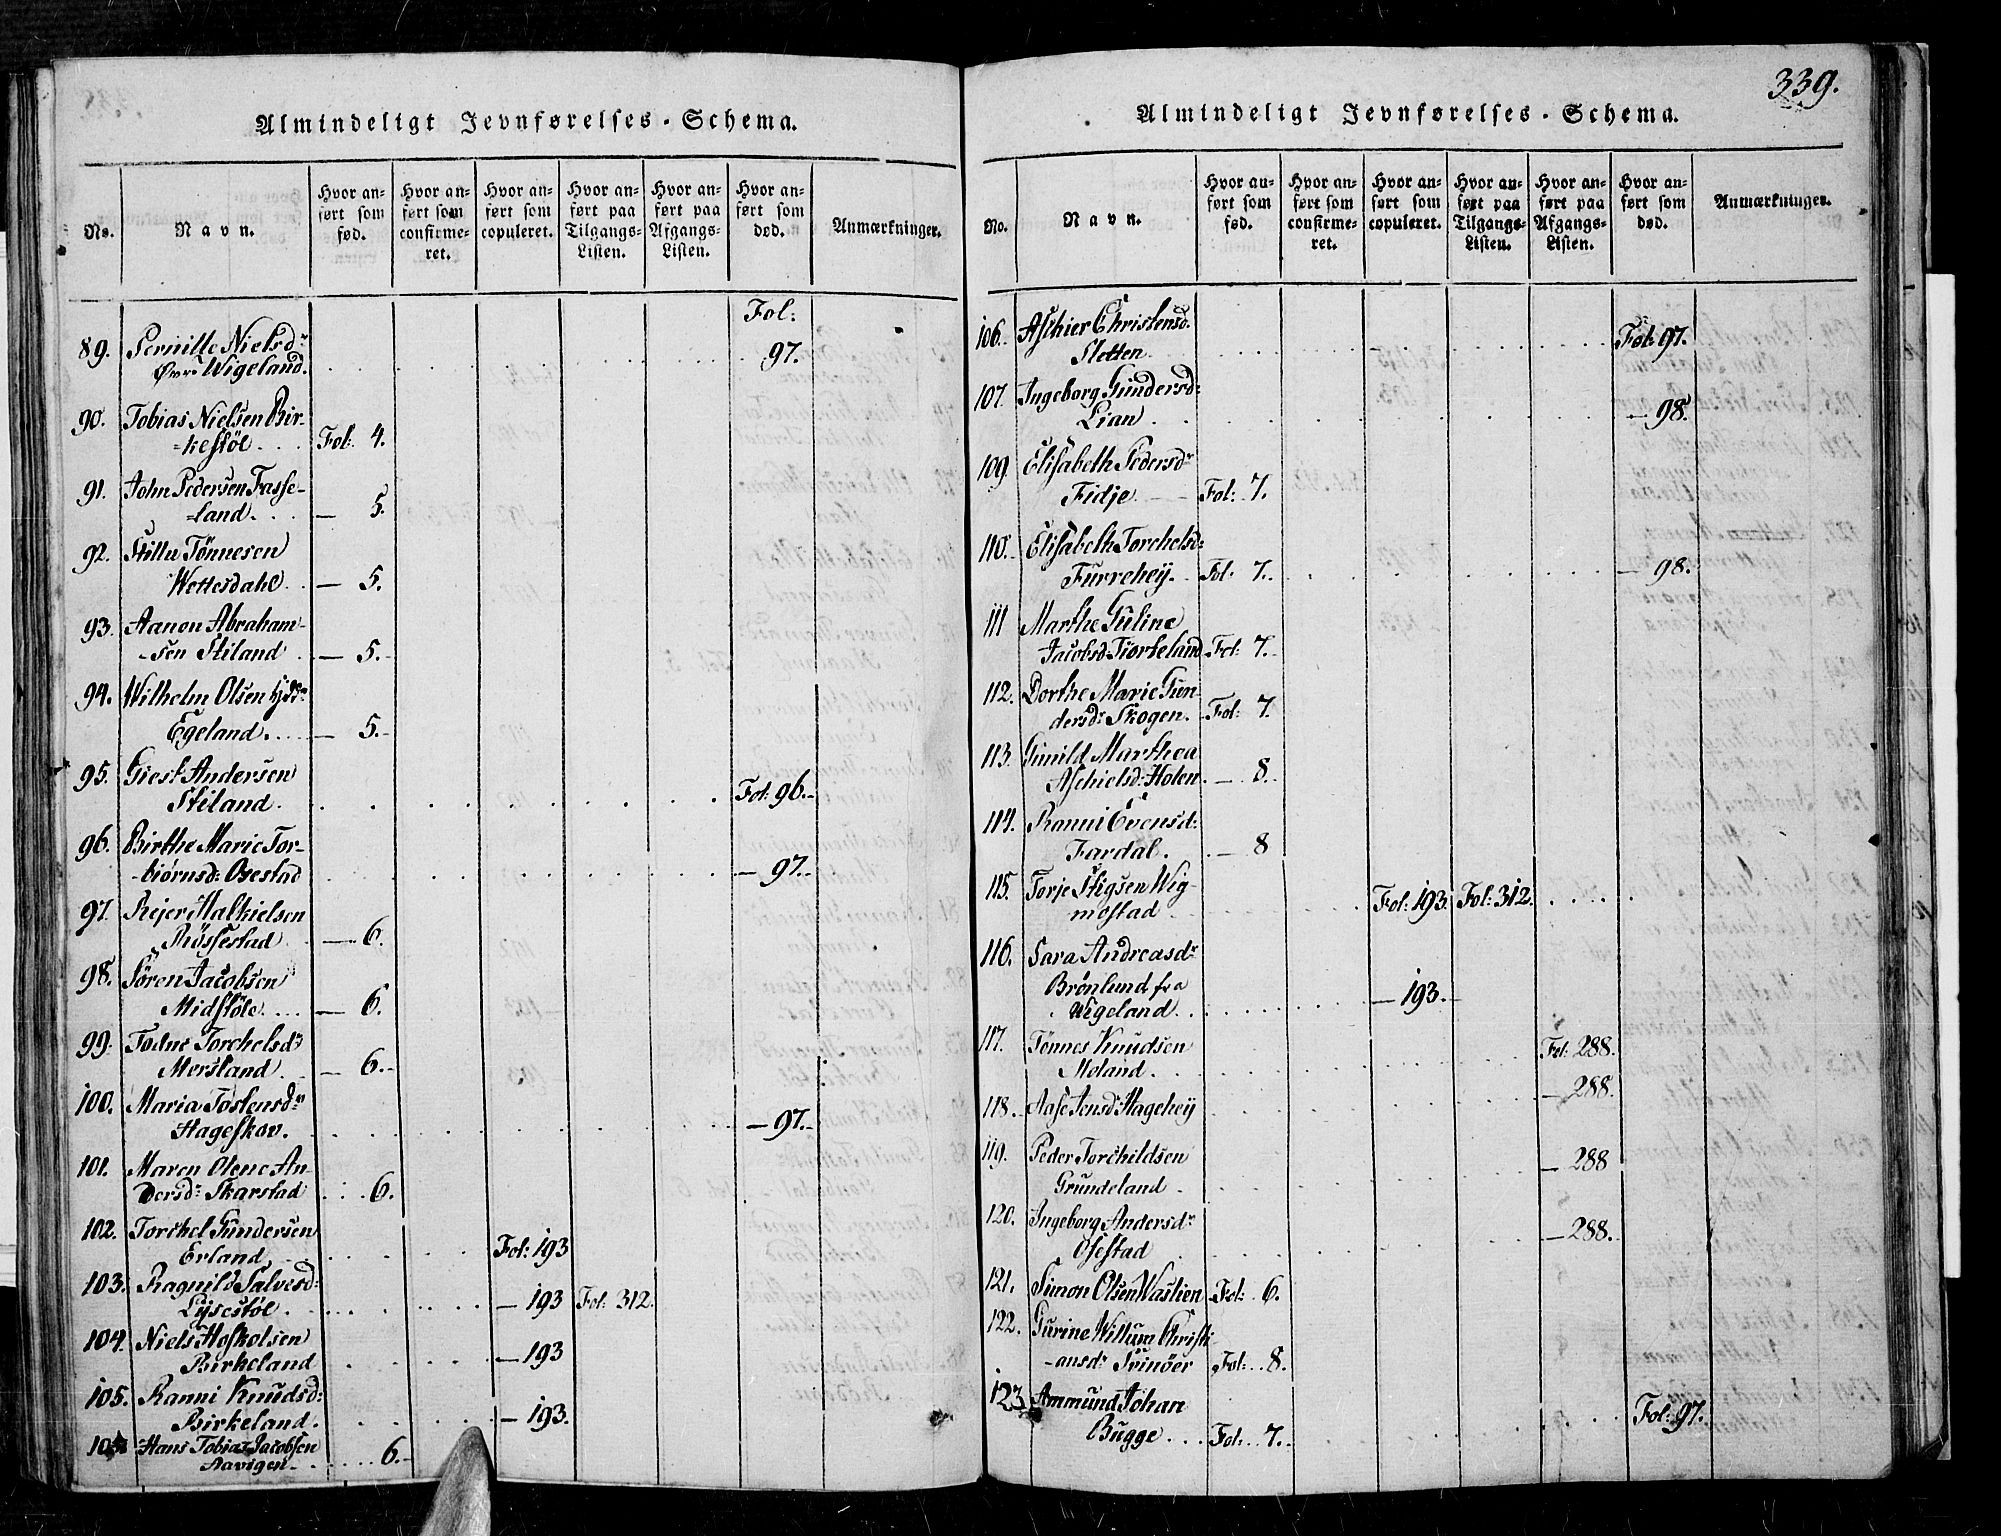 Almindeligt Jevnførelses-Schema.
No.
Navn.
Hvor anført som fød.
Hvor anført som confirmeret.
Hvor anført som copuleret.
Hvor anført paa Tilgangs-Listen.
Hvor anført paa Afgangs-Listen.
Hvor anført som død.
Anmærkninger.
Fol:
89. Pernille Nielsdr
Øvre Wigeland. 97.
90. Tobias Nielsen Bir-
-kestøl Fol: 4.
91. John Pedersen Fasse-
-land. — 5.
92. Stillu Tönnesen
Wettesdahl — 5.
93. Aanon Abraham-
-sen Stiland — 5.
94. Wilhelm Olsen
Egeland. — 5.
95. Giest Andersen
Stiland. Fol: 96.
96. Birthe Marie Tor-
-biørnsd: Osestad — 97.
97. Rejer Malkielsen
Røssestad — 6.
98. Søren Jacobsen
Midstöle — 6.
99. Todne Torchelsdr
Mersland — 6.
100. Maria Tostensdr
Hageskov. — 97.
101. Maren Olene An-
dersdr Skarstad 6.
102. Torchel Gundersen
Erland Fol: 193
103. Ragnild Salvesd:
Lysestöl — 193 Fol: 312.
104. Niels Hoskolsen
Birkeland — 193
105. Ranni Knudsd:
Birkeland. — 193.
Hans Tobias Jacobsen
Aavigen 6.
339.
Almindeligt Jevnførelses-Schema.
No.
Navn.
Hvor anført som fød.
Hvor anført som confirmeret.
Hvor anført som copuleret.
Hvor anført paa Tilgangs-Listen.
Hvor anført paa Afgangs-Listen.
Hvor anført som død.
Anmærkninger.
106. Aschier Christensd.
Sletten Fol: 97.
107. Ingeborg Gundersd:
Lian — 98.
109. Elisabeth Pedersdr
Fidje Fol: 7.
110. Elisabeth Torchelsd:
Furrehey. Fol: 7. — 98.
111 Marthe Guline
Jacobsd: Tiørkeland Fol: 7.
112. Dorthe Marie Gun-
dersdr Skogen. Fol: 7.
113. Gunild Marthea
Aschielsd: Holen — 8.
114. Ranni Evensd:
Fardal. — 8
115. Torje Stigsen Weg-
mostad Fol: 193. Fol: 312.
116. Sara Andreasdr
Brönlund fra
Wigeland. — 193.
117. Tönnes Knudsen
Moland. Fol: 288.
118. Aase Jensd: Hagehey — 288.
119. Peder Torchildsen
Grundeland — 288
120. Ingeborg Andersdr
Osestad — 288.
121. Simon Olsen Wastien Fol: 6.
122. Gurine Willum Christi-
-ansdr Trinöer Fol: 8.
123. Ammund Johan
Bugge Fol: 7. Fol: 97.